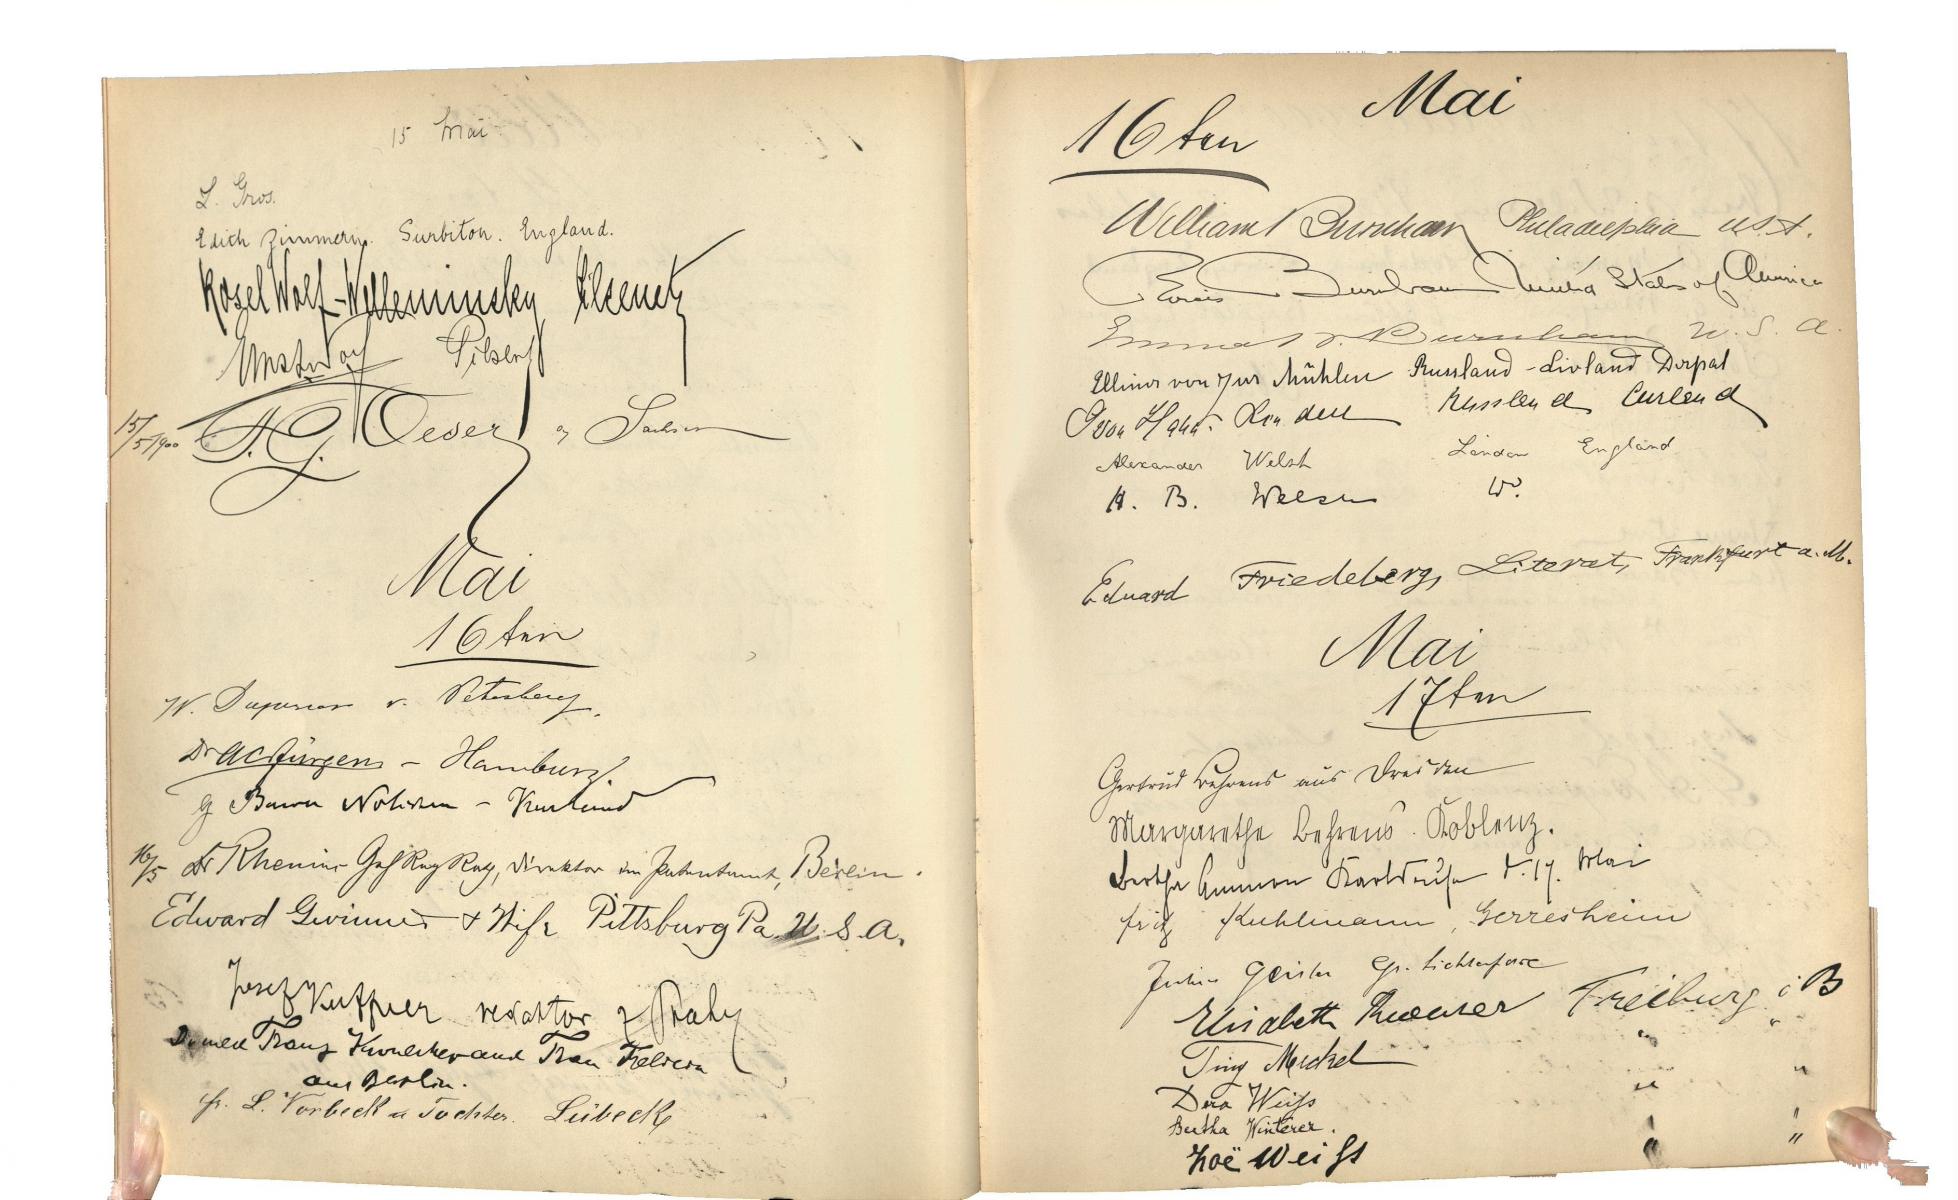 15 Mai
L. Gros.
Edith Zimmern. Surbiton. England.
Rosel Wolf-Welleminsky
Ernst Wolf Pilsen
15/5 1900 A. G. Oeser Sachsen
Mai
16ten
W. v. Petersberg.
Dr AC Jürgens - Hamburg.
Baron Nolcken - Kurland
16/5 Dr Rhenius Direktor im Patentamt, Berlin.
Edward Gwinner & Wife Pittsburg Pa. U. S. A.
Josef Kuffner redaktor z Prahy
Franz und Frau
aus Berlin.
Fr. L. Vorbeck u Tochter. Lübeck
Mai
16ten
William Burnham Philadelphia U.S.A.
Burnham United States of America
Emma Burnham U. S. A.
Ellinor von zur Mühlen Russland - Livland Dorpat
von Hahn - Linden Russland Curland
Alexander Welsh London England
H. B. Welsh
Eduard Friedeberg, Literat, Frankfurt a. M.
Mai
17ten
Gertrud Behrens aus Dresden
Margarethe Behrens Koblenz.
Bertha Ammon Karlsruhe d. 17. Mai
Fritz Kuhlmann, Gerresheim
Geisler Gr. Lichterfelde
Elisabeth Freiburg i B
Tiny Merkel " "
Dora Weiß " "
Bertha Winterer. " "
Zoë Weiß " "